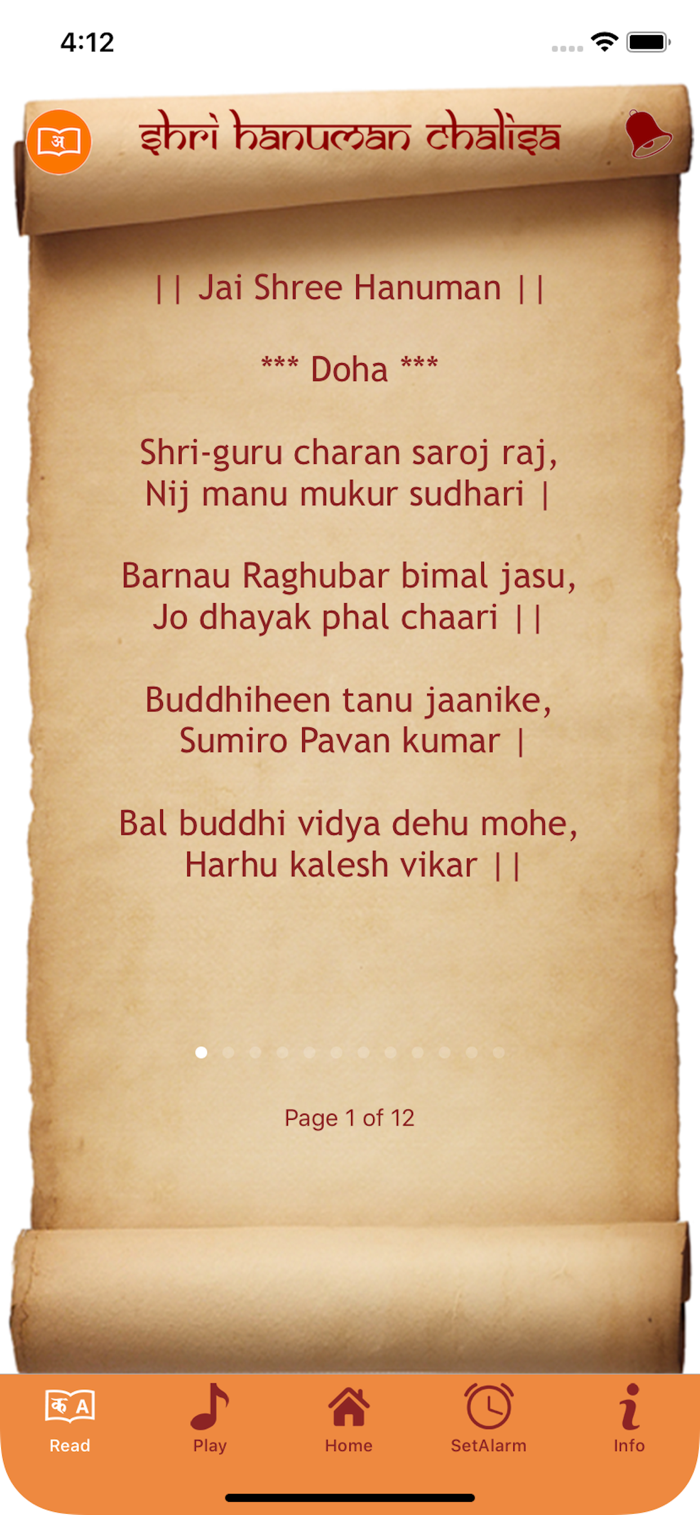 4:12
अ
shri hanuman chalisa
|| Jai Shree Hanuman ||
*** Doha ***
Shri-guru charan saroj raj,
Nij manu mukur sudhari |
Barnau Raghubar bimal jasu,
Jo dhayak phal chaari ||
Buddhiheen tanu jaanike,
Sumiro Pavan kumar |
Bal buddhi vidya dehu mohe,
Harhu kalesh vikar ||
Page 1 of 12
क A
Read
Play
Home
SetAlarm
Info